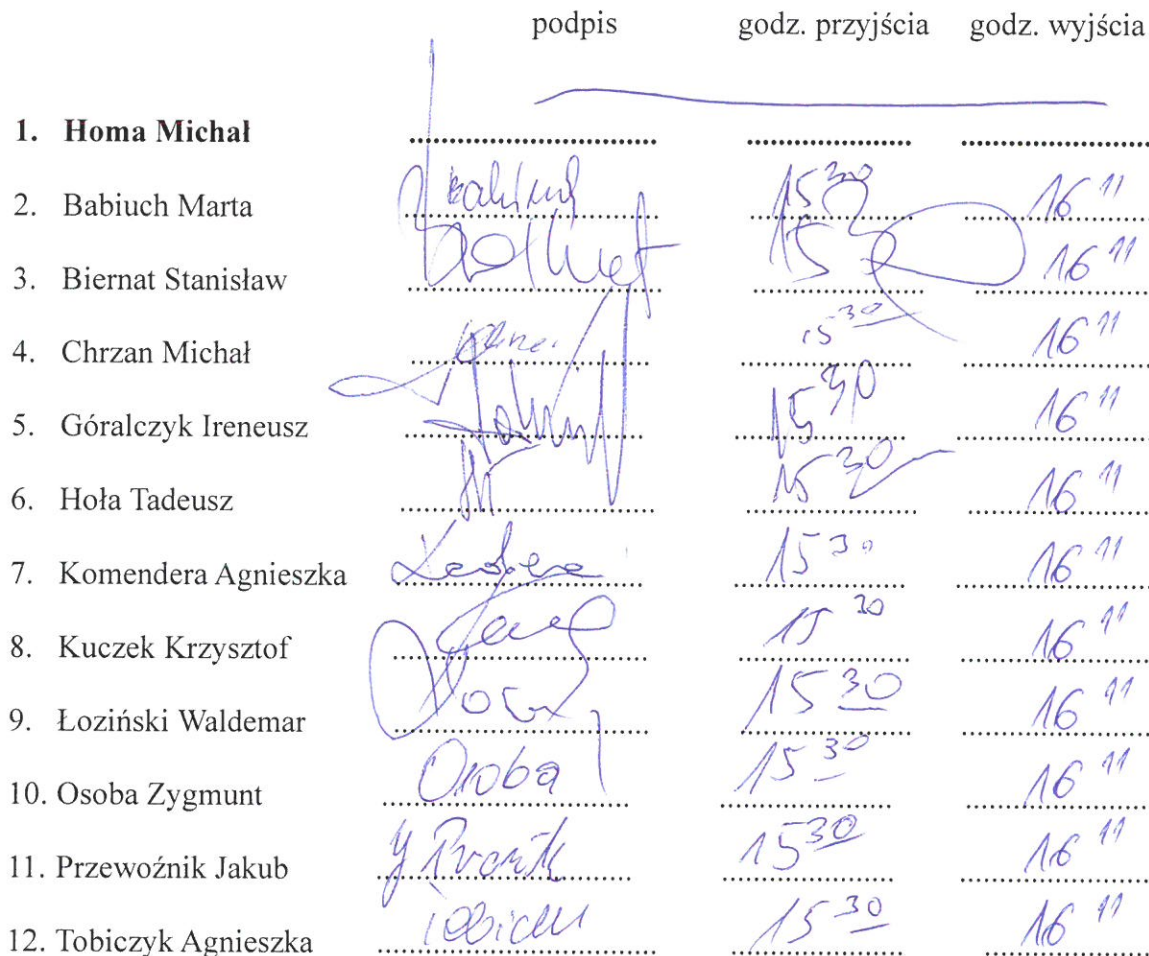 podpis godz. przyjścia godz. wyjścia
1. Homa Michał
2. Babiuch Marta 15 30 16 11
3. Biernat Stanisław 15 16 11
4. Chrzan Michał 15 30 16 11
5. Góralczyk Ireneusz 15 30 16 11
6. Hoła Tadeusz 15 30 16 11
7. Komendera Agnieszka 15 30 16 11
8. Kuczek Krzysztof 15 30 16 11
9. Łoziński Waldemar 15 30 16 11
10. Osoba Zygmunt Osoba 15 30 16 11
11. Przewoźnik Jakub 15 30 16 11
12. Tobiczyk Agnieszka 15 30 16 11